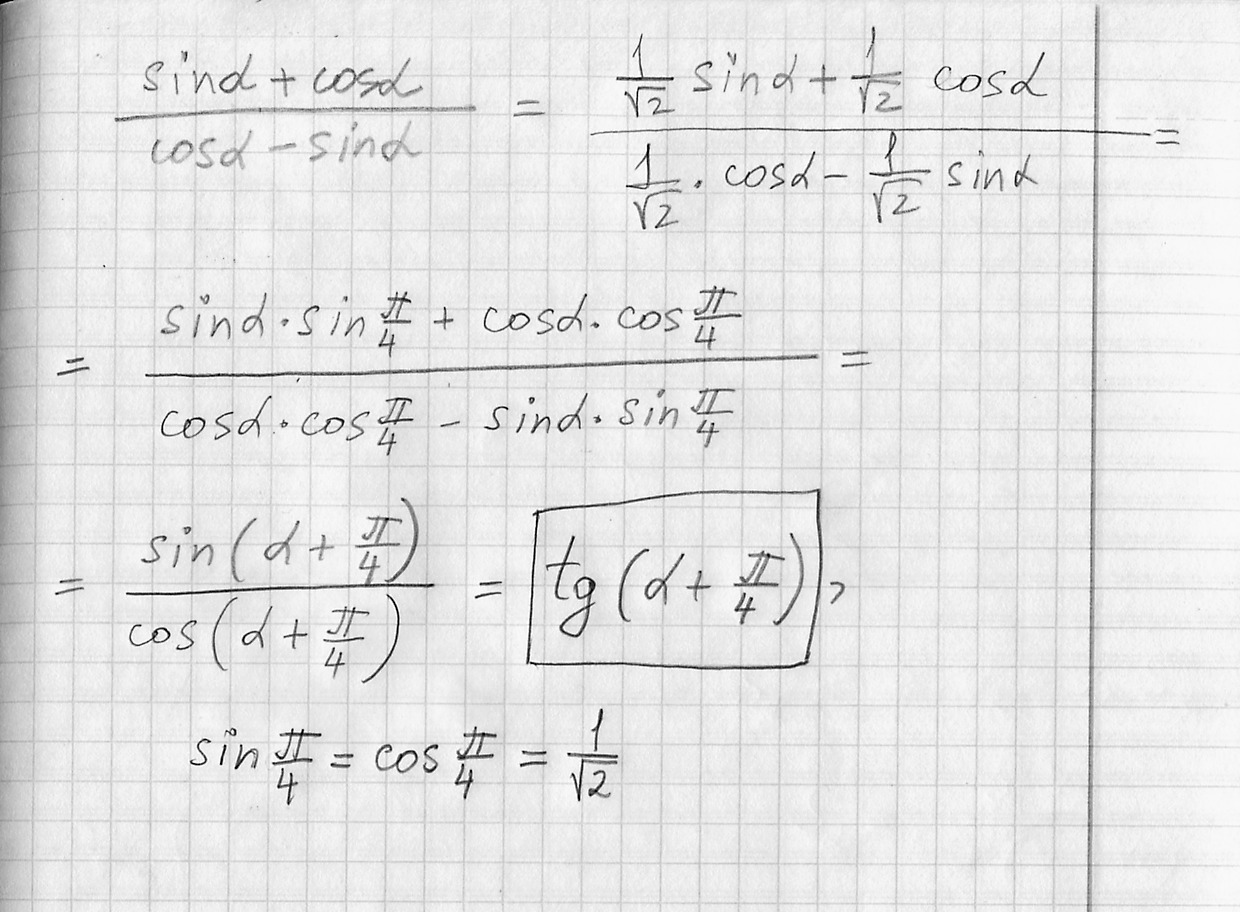 (sinα + cosα)/(cosα − sinα) = (1/√2 sinα + 1/√2 cosα)/(1/√2 · cosα − 1/√2 sinα) =
= (sinα · sin π/4 + cosα · cos π/4)/(cosα · cos π/4 − sinα · sin π/4) =
= sin(α + π/4)/cos(α + π/4) = tg(α + π/4),
sin π/4 = cos π/4 = 1/√2